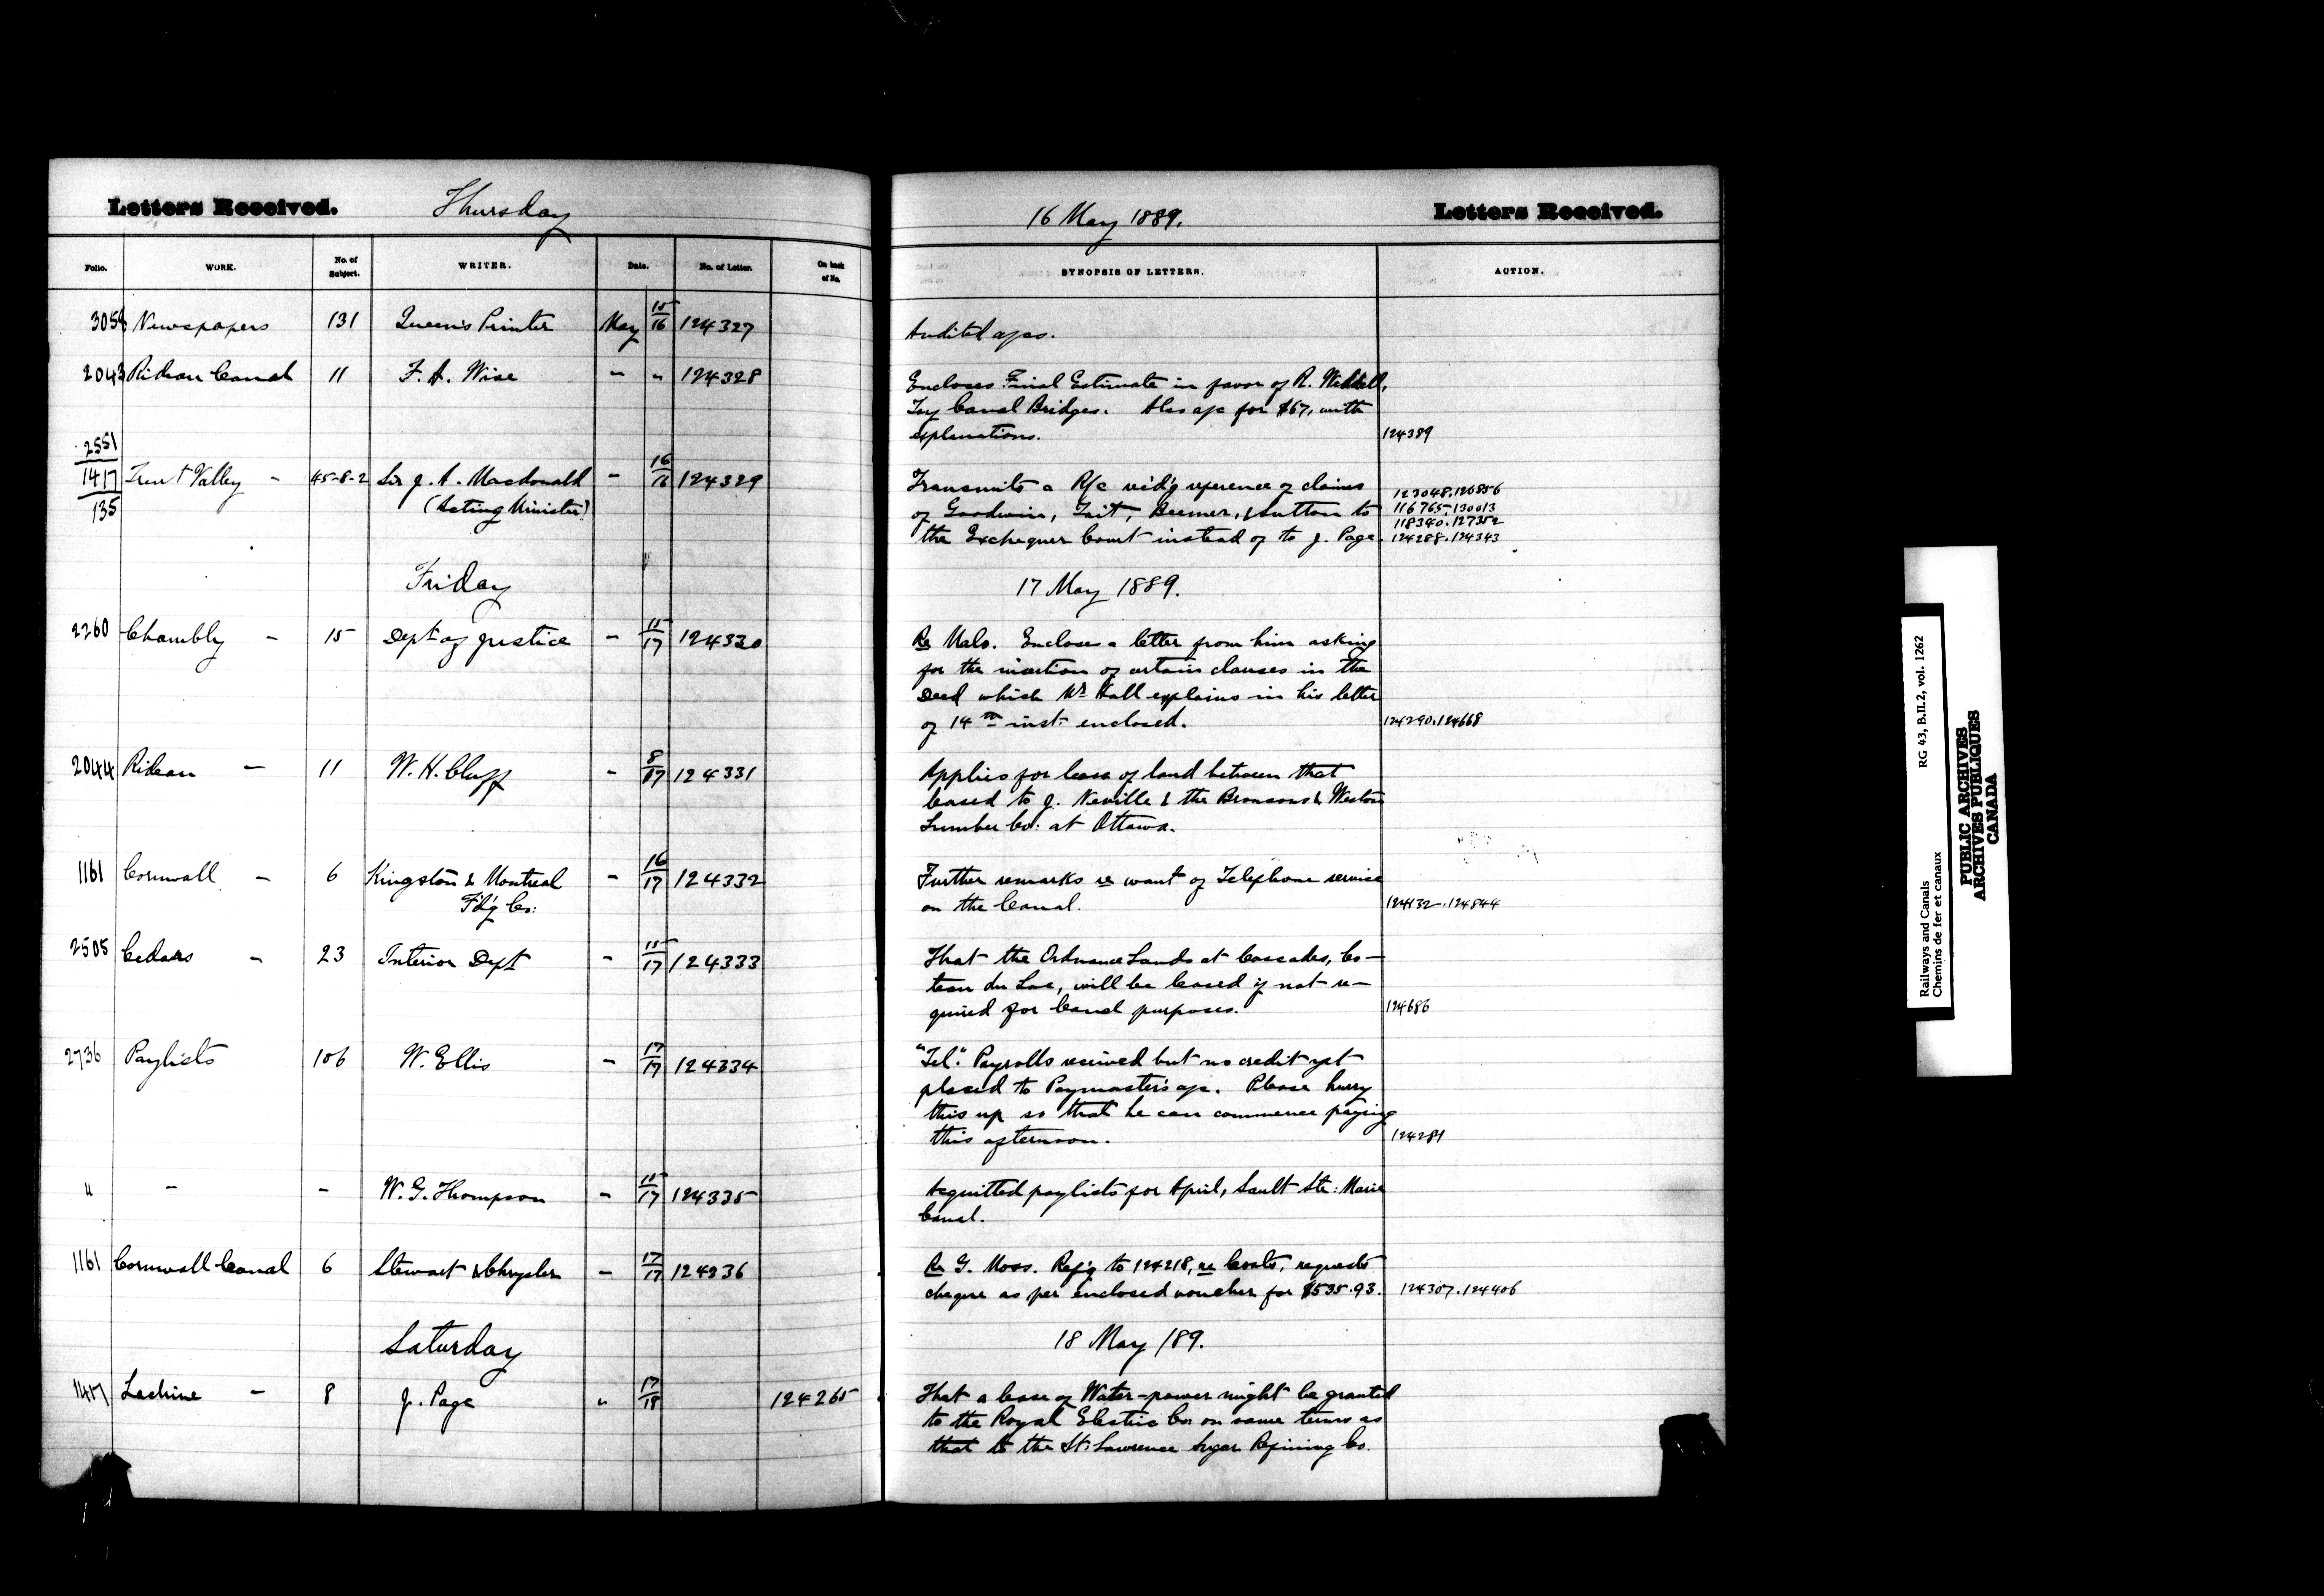 Letters Received. Thursday 16 May 1889. Letters Received.
Folio. WORK. No. of Subject. WRITER. Date. No. of Letter. On back of No. SYNOPSIS OF LETTERS. ACTION.
3058 Newspapers 131 Queen's Printer May 15/16 124327 Audited a/cs.
2043 Rideau Canal 11 F. A. Wise - " 124328 Encloses Final Estimate in favor of R. Weddell,
Tay Canal Bridges. Also a/c for $67, with
explanations. 124389
2551
1417 Trent Valley - 45-8-2 Sir J. A. Macdonald - 16/16 124329 Transmits a R/c recd'g reference of claims 123048.126856
135 (Acting Minister) of Goodwin, Tait, Beemer, & Sutton to 116765.130013
118340.127352
the Exchequer Court instead of to J. Page. 124288.124343
Friday 17 May 1889.
2260 Chambly - 15 Dept of Justice - 15/17 124330 Re Malo. Encloses a letter from him asking
for the insertion of certain clauses in the
Deed which Mr Hall explains in his letter
of 14th inst. enclosed. 124290.124668
2044 Rideau - 11 W. H. Cluff - 8/17 124331 Applies for lease of land between that
leased to J. Neville & the Bronsons & Weston
Lumber Co: at Ottawa.
1161 Cornwall - 6 Kingston & Montreal - 16/17 124332 Further remarks re want of Telephone service
F'd'g Co: on the Canal. 124132.124844
2505 Cedars - 23 Interior Dept - 15/17 124333 That the Ordnance Lands at Cascades, Co-
teau du Lac, will be leased if not re-
quired for Canal purposes. 124686
2736 Paylists 106 W. Ellis - 17/17 124334 "Tel". Payrolls received but no credit yet
placed to Paymaster's a/c. Please hurry
this up so that he can commence paying
this afternoon. 124284
" - - W. G. Thompson - 15/17 124335 Acquitted paylists for April, Sault Ste: Marie
Canal.
1161 Cornwall Canal 6 Stewart & Chrysler - 17/17 124336 Re G. Moss. Ref'g to 124218, re Costs, requests
cheque as per enclosed voucher for $535.93. 124307.124406
Saturday 18 May /89.
1417 Lachine - 8 J. Page " 17/18 124265 That a lease of Water-power might be granted
to the Royal Electric Co. on same terms as
that to the St. Lawrence Sugar Refining Co.
Railways and Canals RG 43, B.II.2, vol. 1262
Chemins de fer et canaux
PUBLIC ARCHIVES
ARCHIVES PUBLIQUES
CANADA